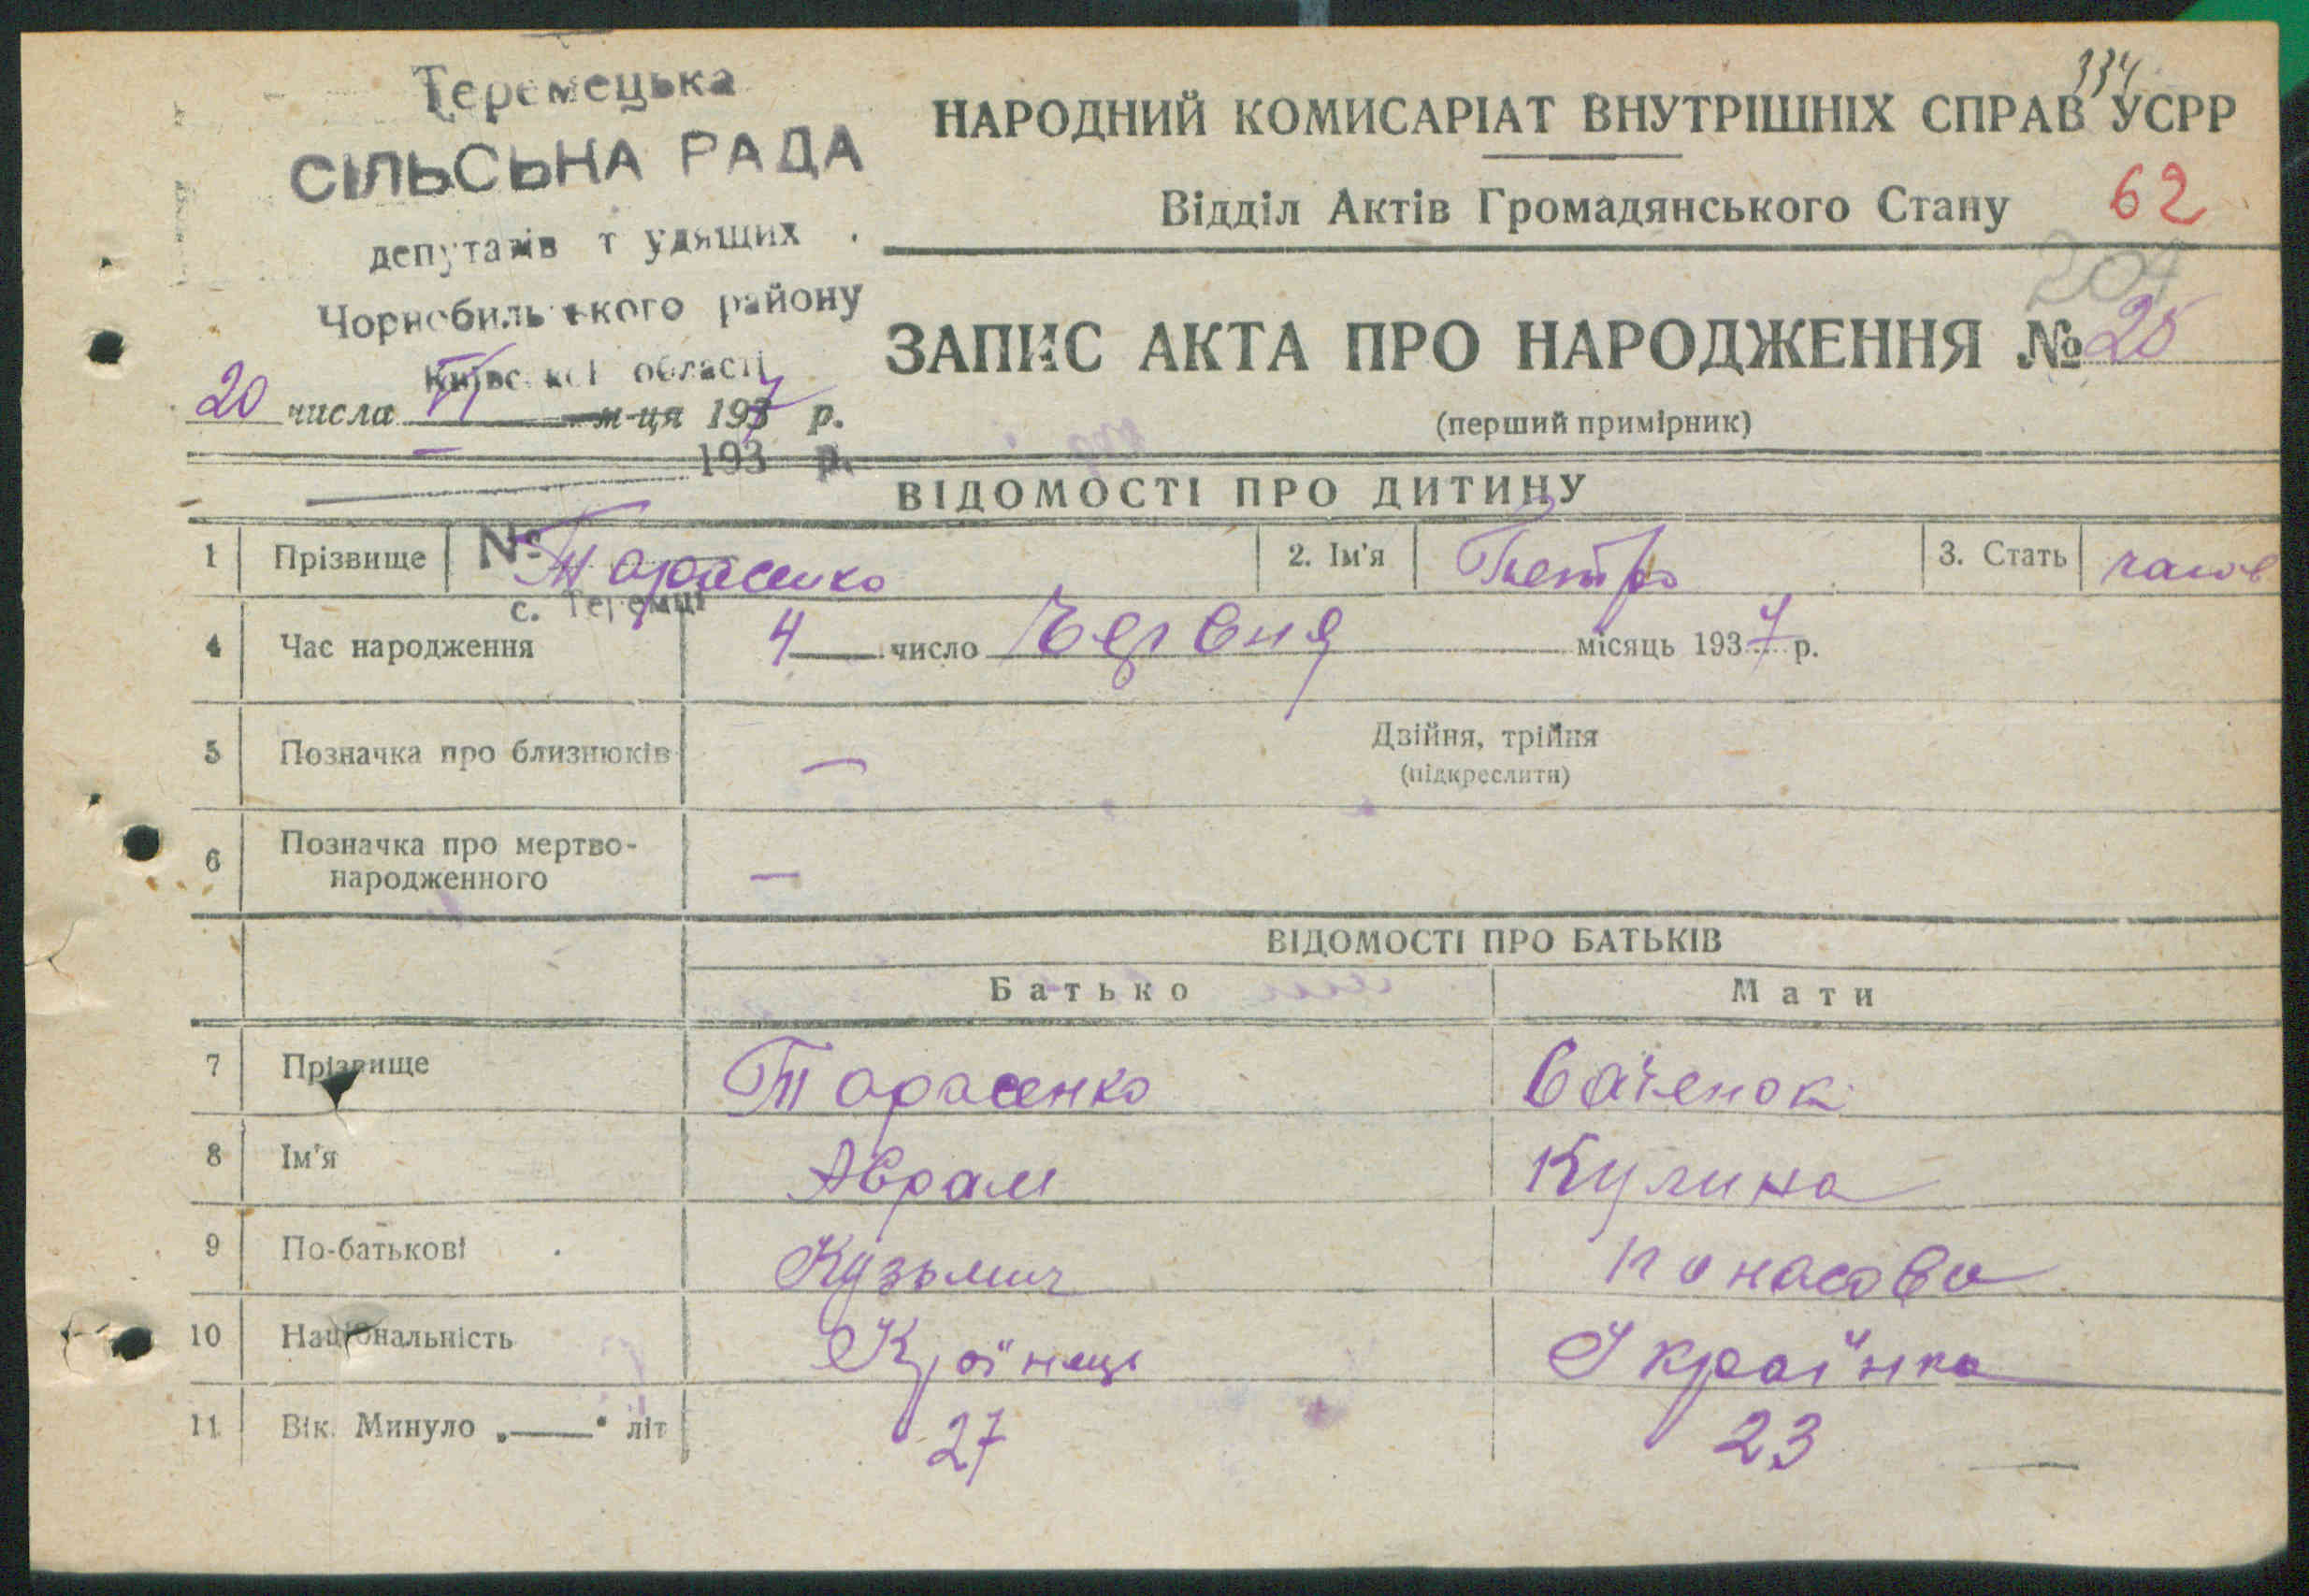 Теремецька
СІЛЬСЬНА РАДА
депутатів т удящих
Чорнобиль ького району
Київс кої області
20 числа VI м-ця 1937 р.
193 р.
№
с. Теремці
334
НАРОДНИЙ КОМИСАРІАТ ВНУТРІШНІХ СПРАВ УСРР
Відділ Актів Громадянського Стану 62
204
ЗАПИС АКТА ПРО НАРОДЖЕННЯ № 25
(перший примірник)
ВІДОМОСТІ ПРО ДИТИНУ
1 Прізвище Тарасенко 2. Ім'я Петро 3. Стать
4 Час народження 4 число Червня місяць 1937 р.
5 Позначка про близнюків — Двійня, трійня
(підкреслити)
6 Позначка про мертво-
народженного —
ВІДОМОСТІ ПРО БАТЬКІВ
Батько Мати
7 Прізвище Тарасенко
8 Ім'я Аврам Кулина
9 По-батькові Кузьмич Понасова
10 Національність Країнець Україінка
11 Вік. Минуло „——" літ 27 23